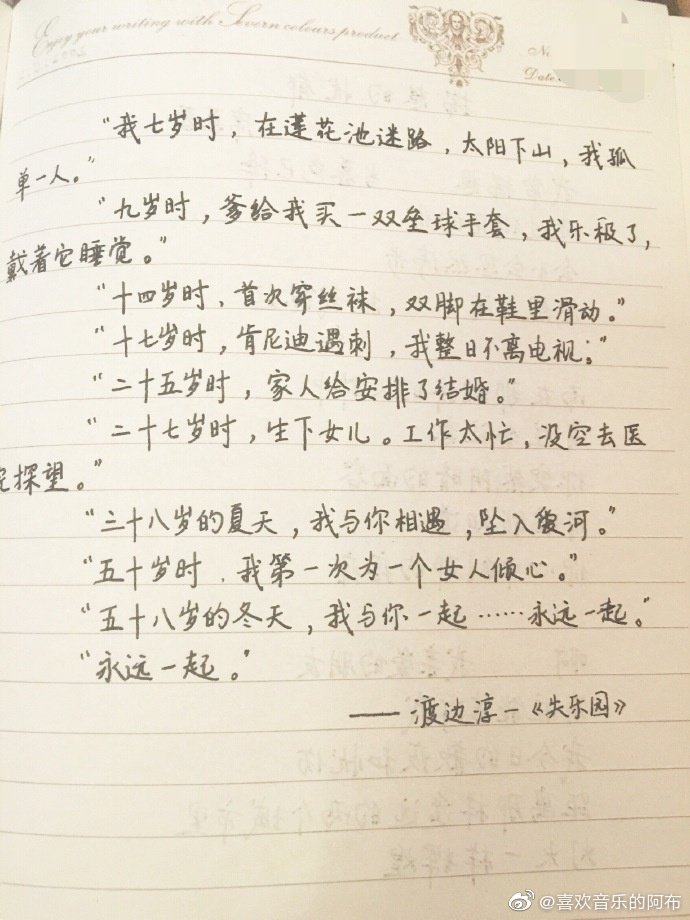 Enjoy your writing with Severn colours product
No
Date
"我七岁时，在莲花池迷路，太阳下山，我孤
单一人。"
"九岁时，爹给我买一双垒球手套，我乐极了，
戴着它睡觉。"
"十四岁时，首次穿丝袜，双脚在鞋里滑动。"
"十七岁时，肯尼迪遇刺，我整日不离电视。"
"二十五岁时，家人给安排了结婚。"
"二十七岁时，生下女儿。工作太忙，没空去医
院探望。"
"三十八岁的夏天，我与你相遇，坠入爱河。"
"五十岁时，我第一次为一个女人倾心。"
"五十八岁的冬天，我与你一起……永远一起。"
"永远一起。"
——渡边淳一《失乐园》
@喜欢音乐的阿布